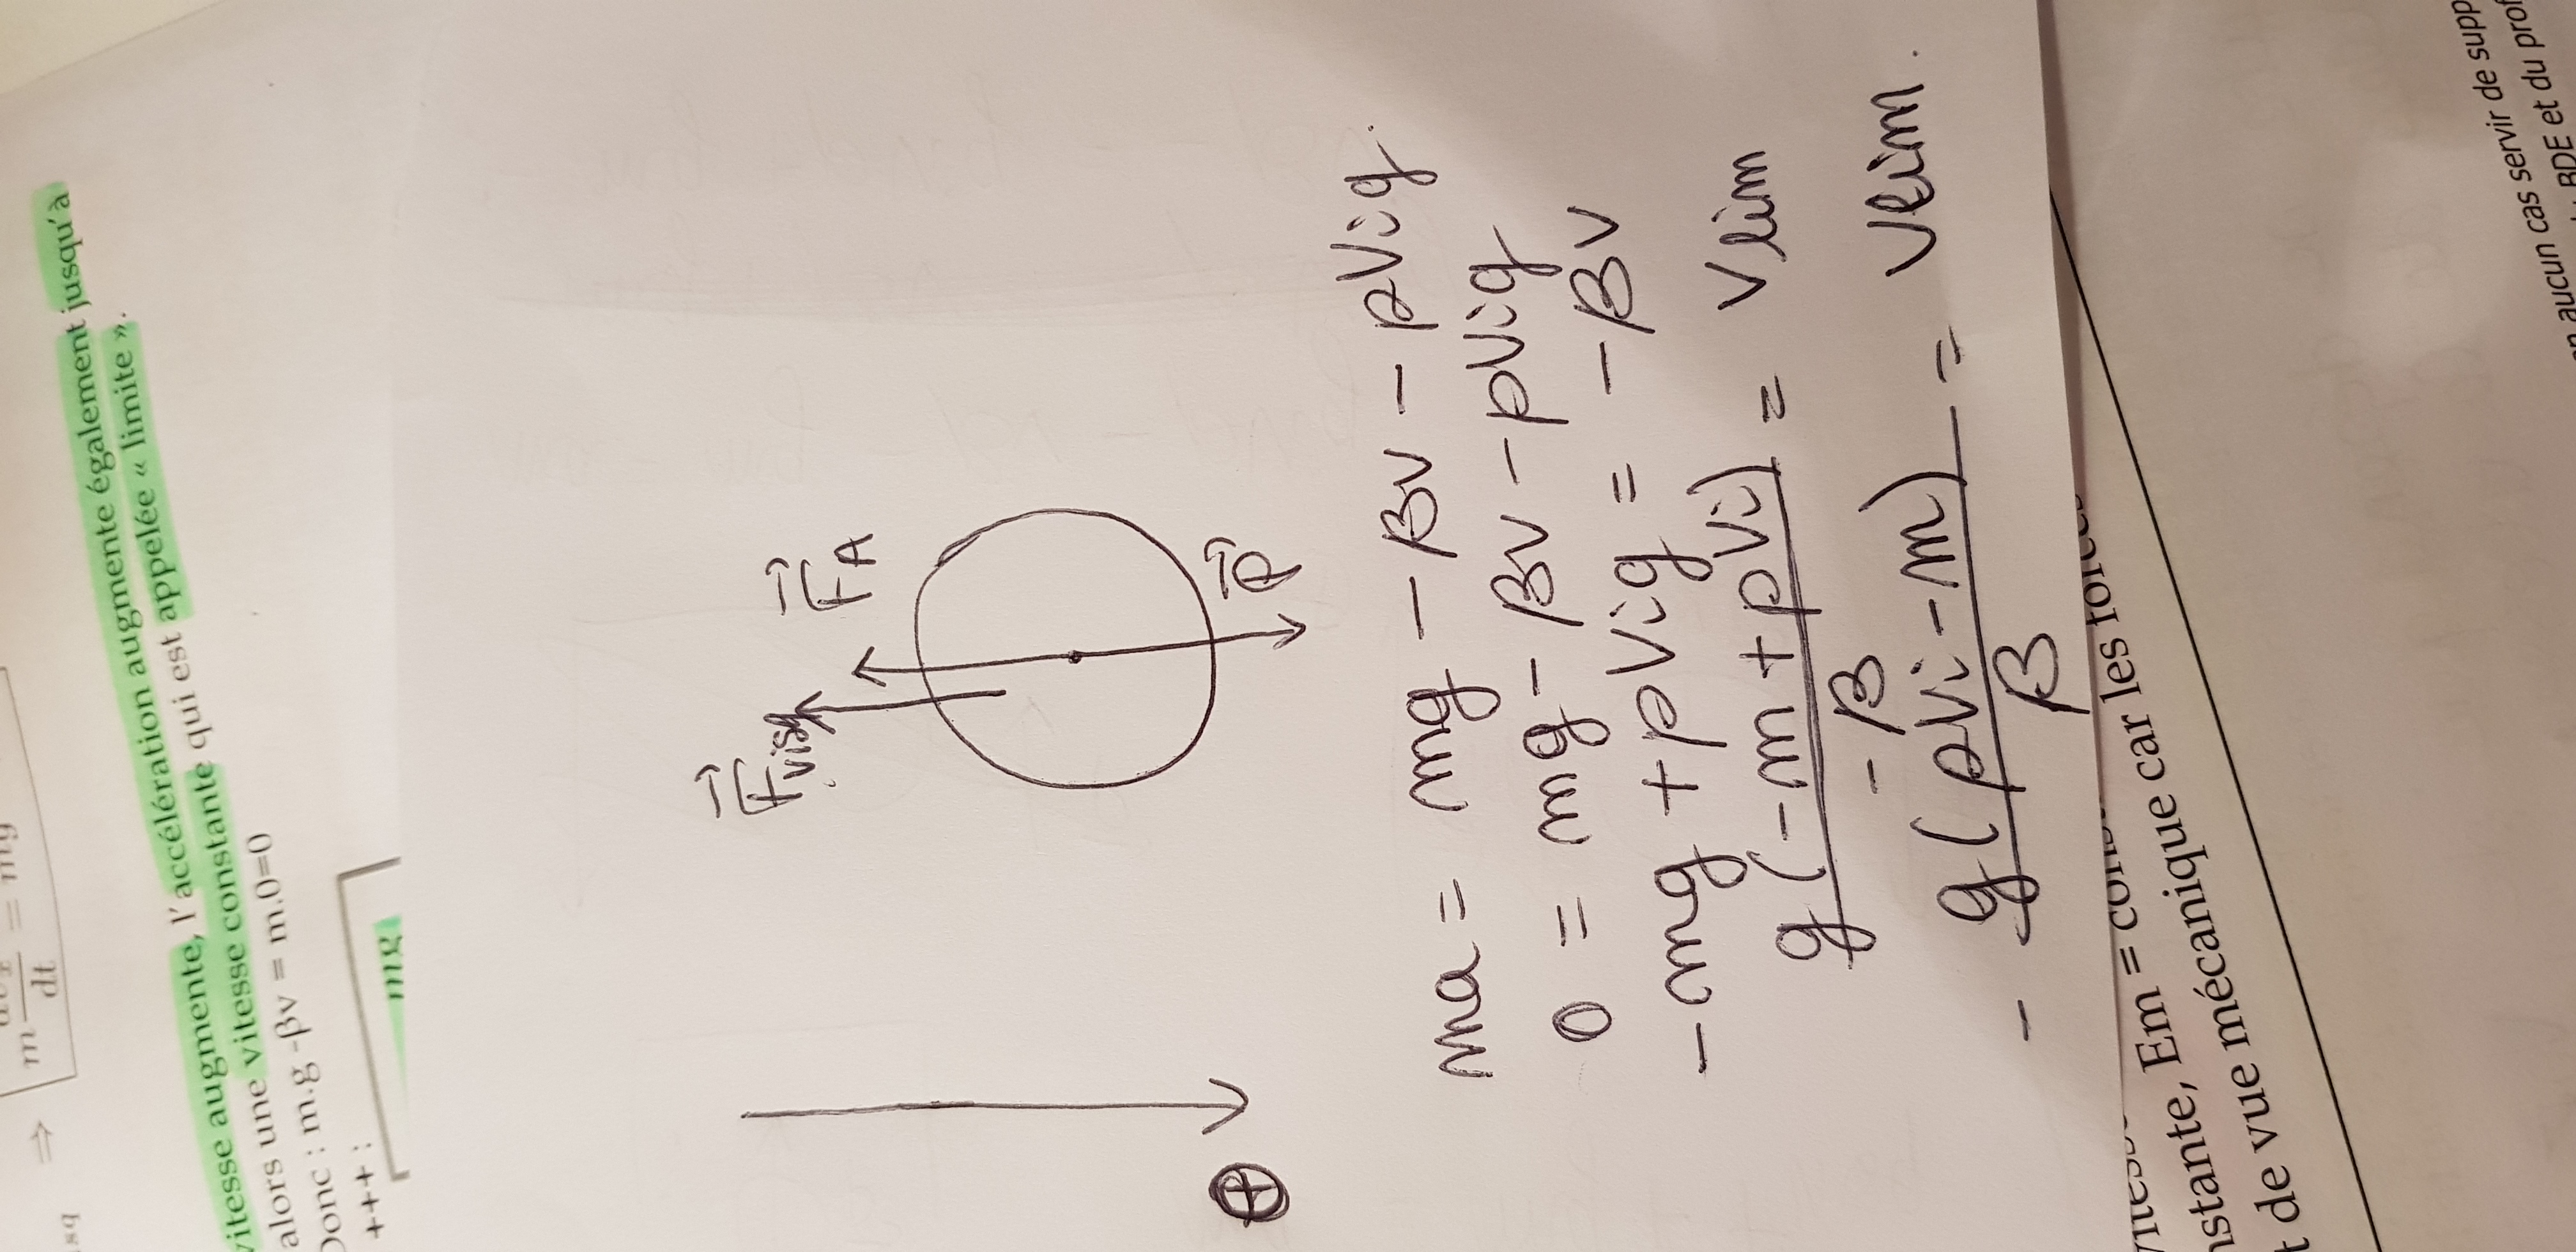 m = mg
dt
⇒
vitesse augmente, l'accélération augmente également jusqu'à
alors une vitesse constante qui est appelée « limite ».
Donc : m.g -βv = m.0=0
+++ :
mg
F⃗visq
F⃗A
P⃗
⊕
ma = mg - βv - ρVig.
0 = mg - βv - ρVig
-mg + ρVig = - βv
g(-m + ρVi) = vlim
-β
- g(ρVi - m) = vlim.
β
instante, Em = car les
t de vue mécanique
en aucun cas servir de supp
BDE et du prof